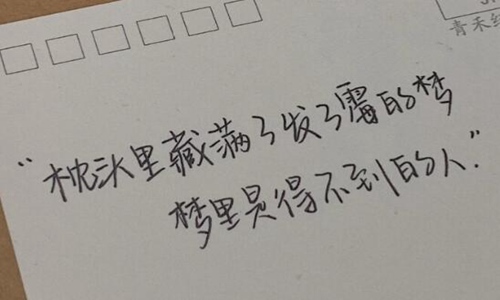 青禾纟
“枕头里藏满了发了霉的梦
梦里是得不到的人.”